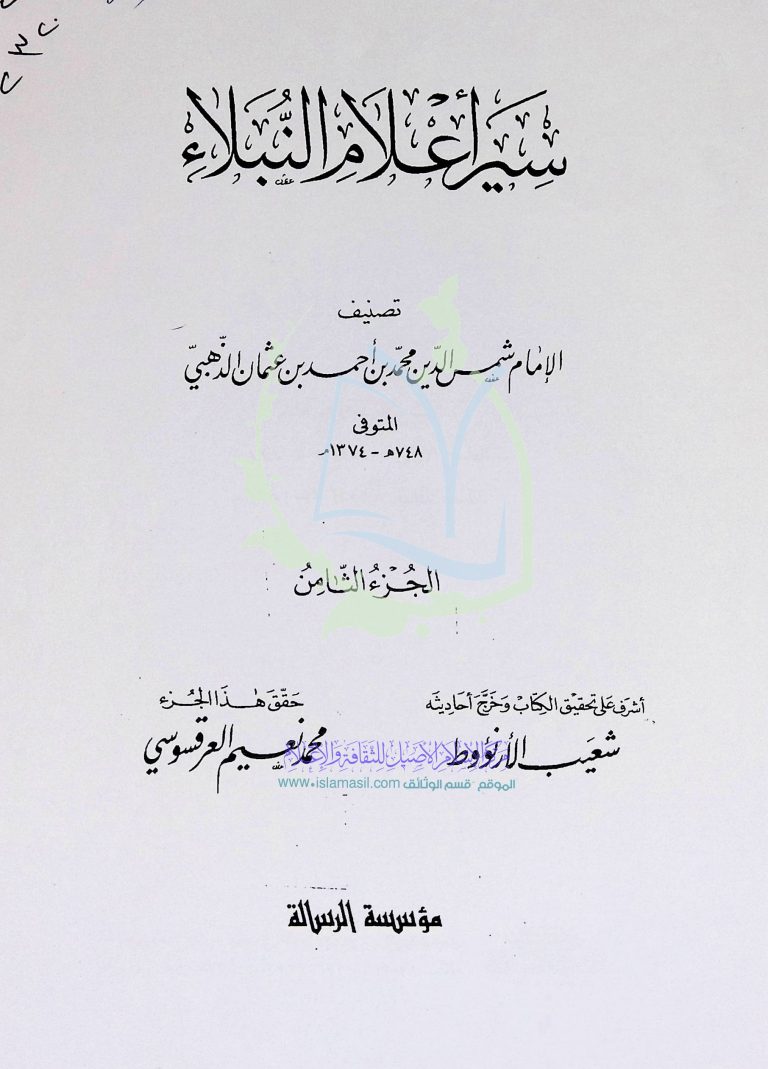 سِيَر أَعْلَامِ النُّبَلَاءِ
تصنيف
الإمام شمس الدّين محمّد بن أحمد بن عثمان الذّهبيّ
المتوفى
٧٤٨هـ - ١٣٧٤م
الجُزءُ الثَّامِنُ
أشرَف عَلى تحقيق الكِتاب وَخَرَّجَ أحَاديثه
شعَيب الأرنؤوط
حَقّقَ هٰذا الجُزء
محمّد نعيم العرقسوسي
الإسلام الأصيل للثقافة والإعلام
الموقع - قسم الوثائق www.islamasil.com
مؤسسة الرسالة